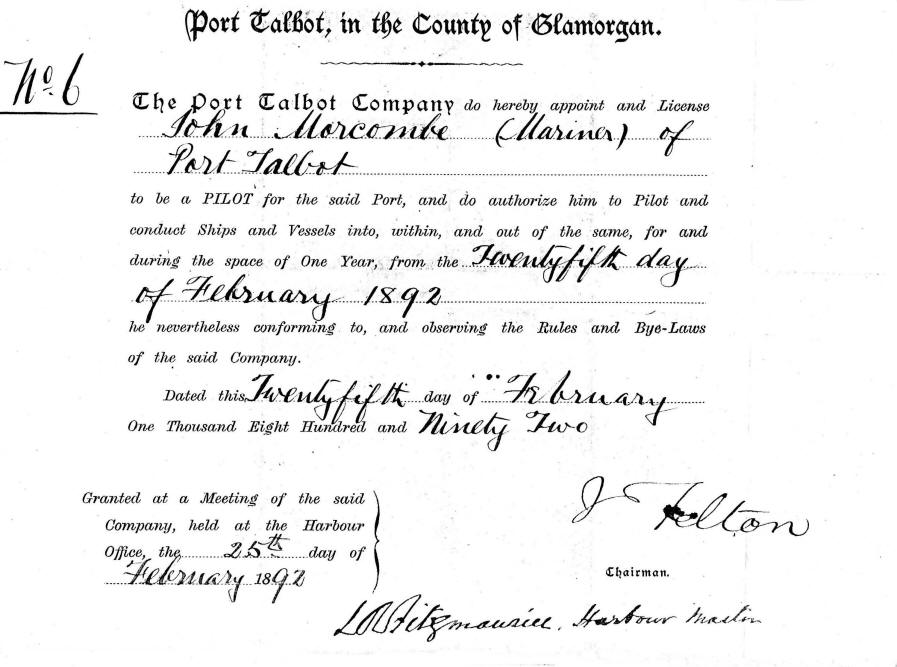 Port Talbot, in the County of Glamorgan.
No. 6
The Port Talbot Company do hereby appoint and License
John Morcombe (Mariner) of
Port Talbot
to be a PILOT for the said Port, and do authorize him to Pilot and
conduct Ships and Vessels into, within, and out of the same, for and
during the space of One Year, from the Twentyfifth day
of February 1892
he nevertheless conforming to, and observing the Rules and Bye-Laws
of the said Company.
Dated this Twentyfifth day of February
One Thousand Eight Hundred and Ninety Two
Granted at a Meeting of the said
Company, held at the Harbour
Office, the 25th day of
February 1892
J Felton
Chairman.
L R Fitzmaurice. Harbour Master